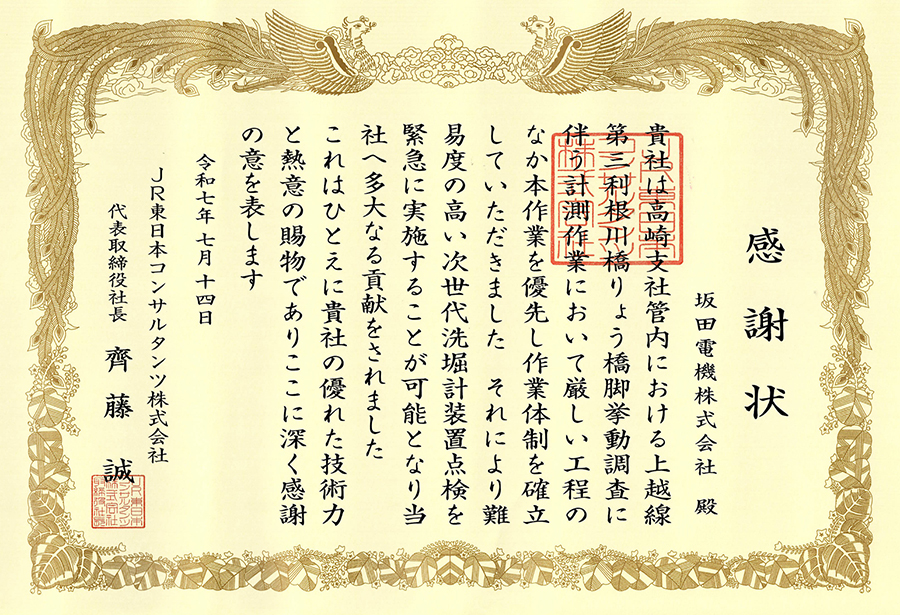 感謝状
坂田電機株式会社 殿
貴社は高崎支社管内における上越線
第三利根川橋りょう橋脚挙動調査に
伴う計測作業において厳しい工程の
なか本作業を優先し作業体制を確立
していただきました それにより難
易度の高い次世代洗堀計装置点検を
緊急に実施することが可能となり当
社へ多大なる貢献をされました
これはひとえに貴社の優れた技術力
と熱意の賜物でありここに深く感謝
の意を表します
令和七年七月十四日
JR東日本コンサルタンツ株式会社
代表取締役社長 齊藤 誠